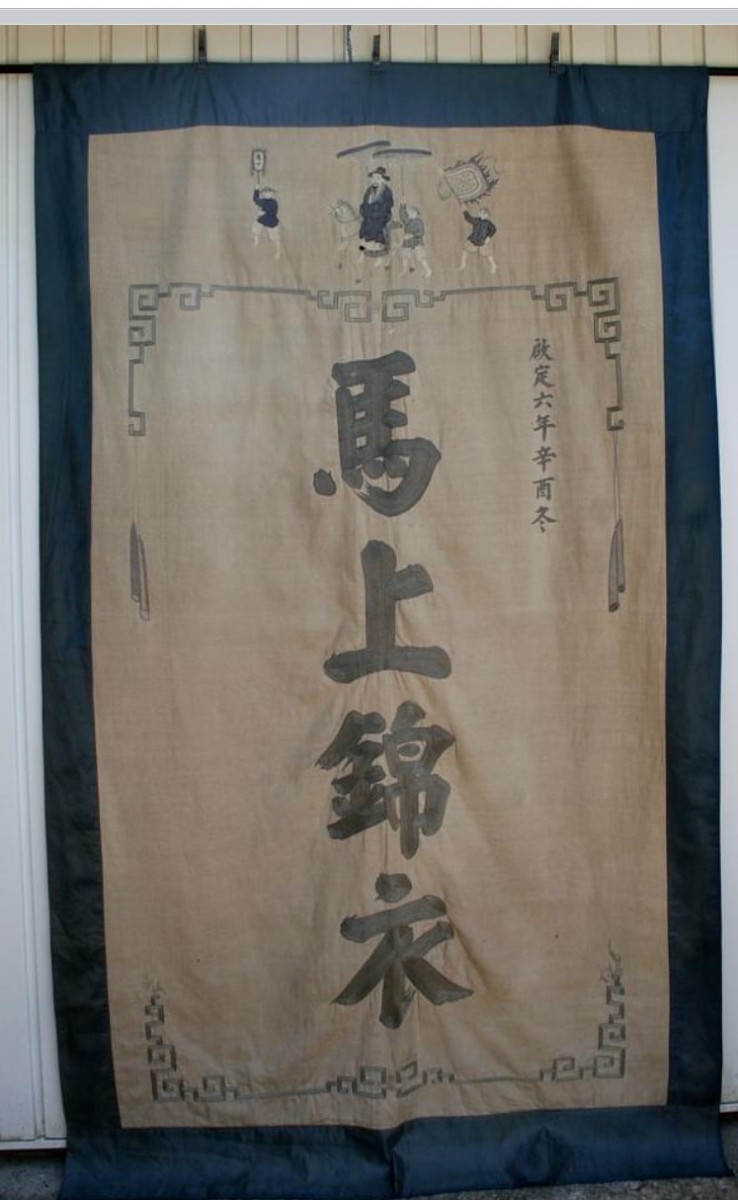 啟定六年辛酉冬
馬上錦衣